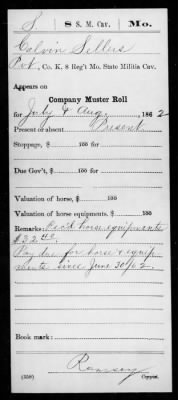 S 8 S. M. Cav. Mo.
Calvin Sellers
Pvt, Co. K, 8 Reg't Mo. State Militia Cav.
Appears on
Company Muster Roll
for July & Aug, 1862
Present or absent Present
Stoppage, $ 100 for
Due Gov't, $ 100 for
Valuation of horse, $ 100
Valuation of horse equipments, $ 100
Remarks: Rec'd horse equipments
$32
Pay due for horse & equip
ments since June 30/62.
Book mark:
Ramsey
(358) Copyist.